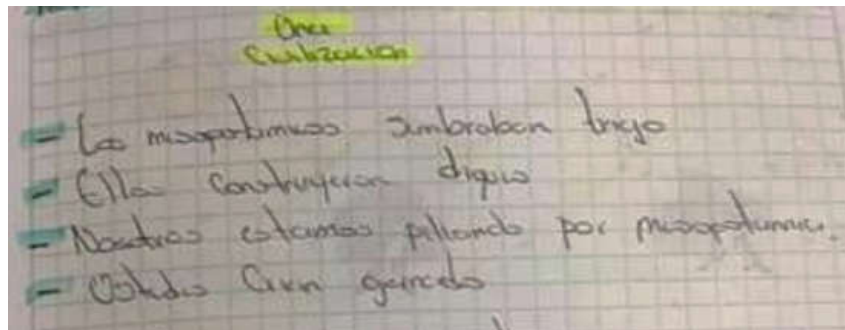 Una
Civilización
- Los mesopotamicos sembraban trigo
- Ellos construyeron diques
- Nosotros estamos peliando por mesopotamia.
- Ustedes Crian ganado